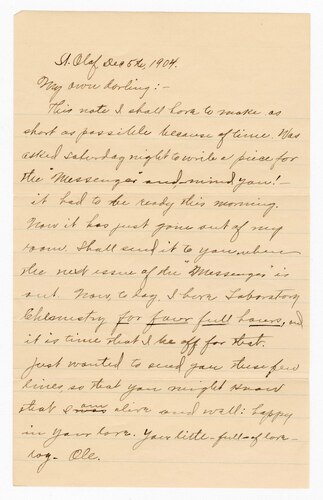 St. Olaf Dec 5th, 1904.
My own darling:-
This note I shall have to make as
short as possible because of time. Was
asked Saturday night to write a piece for
the "Messenger" and mind you!-
it had to be ready this morning.
Now it has just gone out of my
room. Shall send it to you, when
the next issue of the "Messenger" is
out. Now, today, I have Laboratory
Chemistry for four full hours, and
it is time that I be off for that.
Just wanted to send you these few
lines so that you might know
that I am alive and well: happy
in your love. Your little-full of love-
boy- Ole.